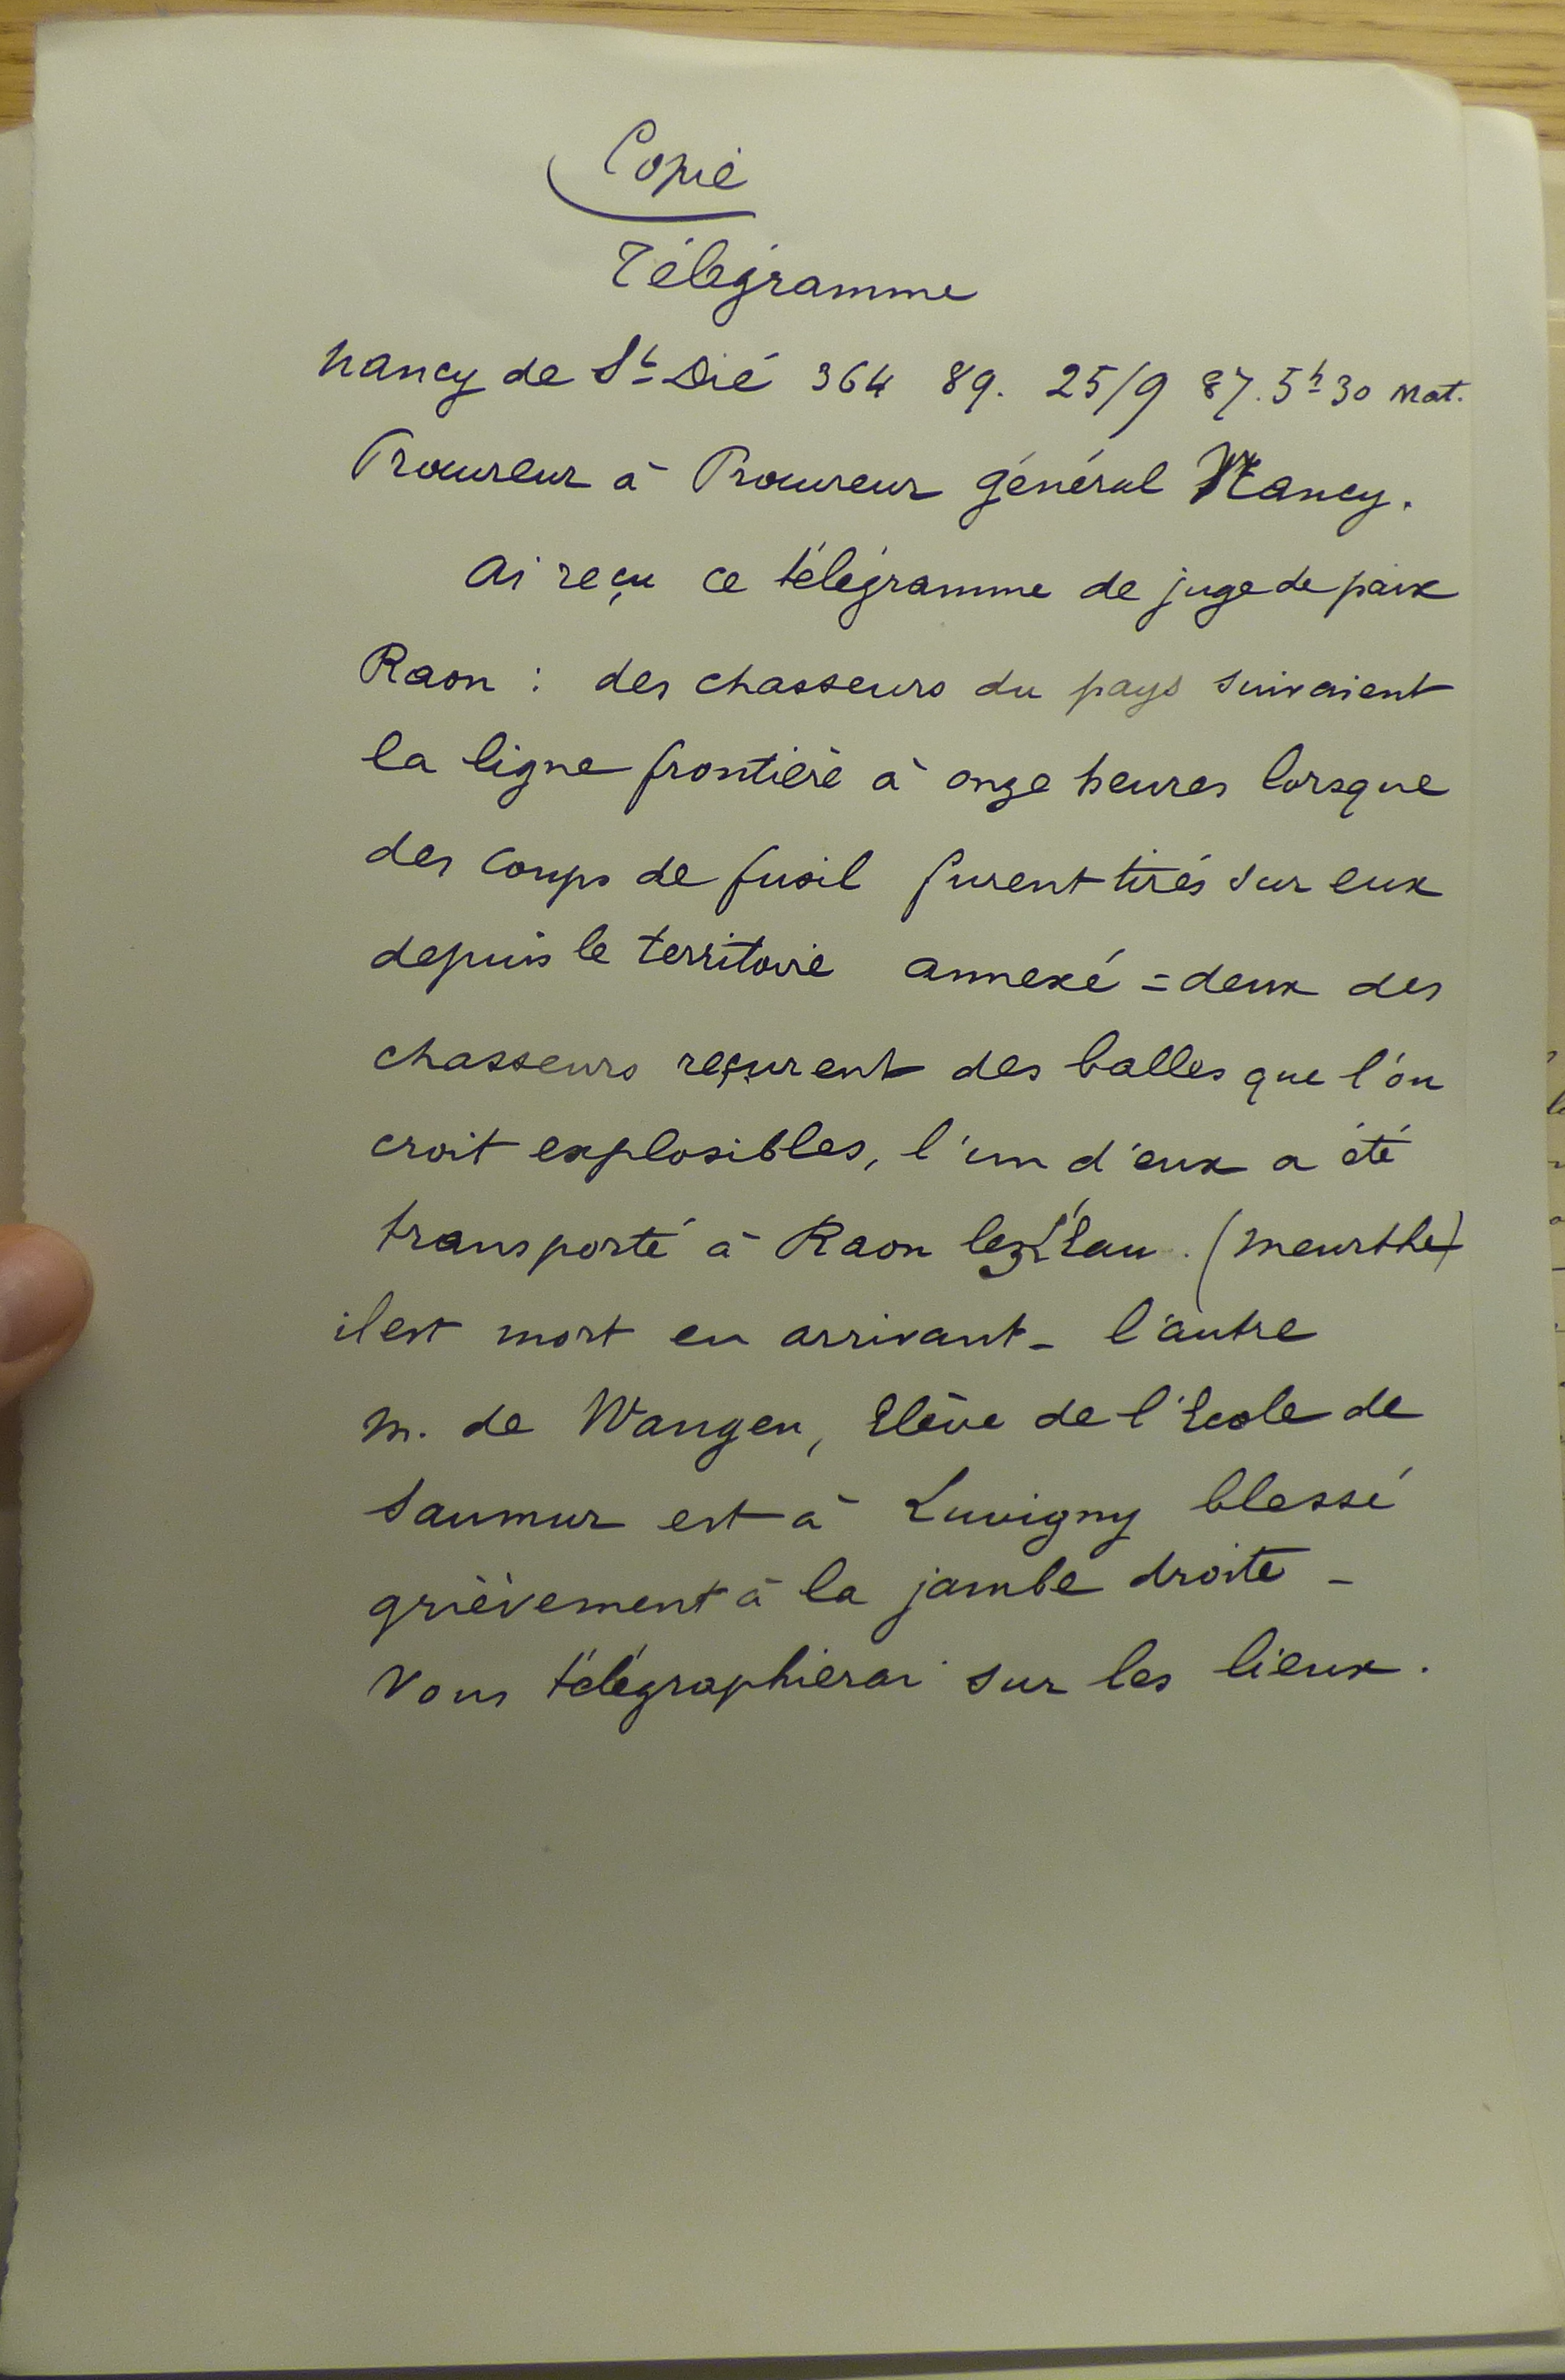 Copie
Télégramme
Nancy de St Dié 364 89. 25/9 87. 5h30 Mat.
Procureur à Procureur général Nancy.
Ai reçu ce télégramme de juge de paix
Raon : des chasseurs du pays suivaient
la ligne frontière à onze heures lorsque
des coups de fusil furent tirés sur eux
depuis le territoire annexé = deux des
chasseurs reçurent des balles que l'on
croit explosibles, l'un d'eux a été
transporté à Raon lez l'Eau. (Meurthe)
il est mort en arrivant - l'autre
M. de Wangen, Elève de l'Ecole de
Saumur est à Luvigny blessé
grièvement à la jambe droite -
Vous télégraphierai sur les lieux.